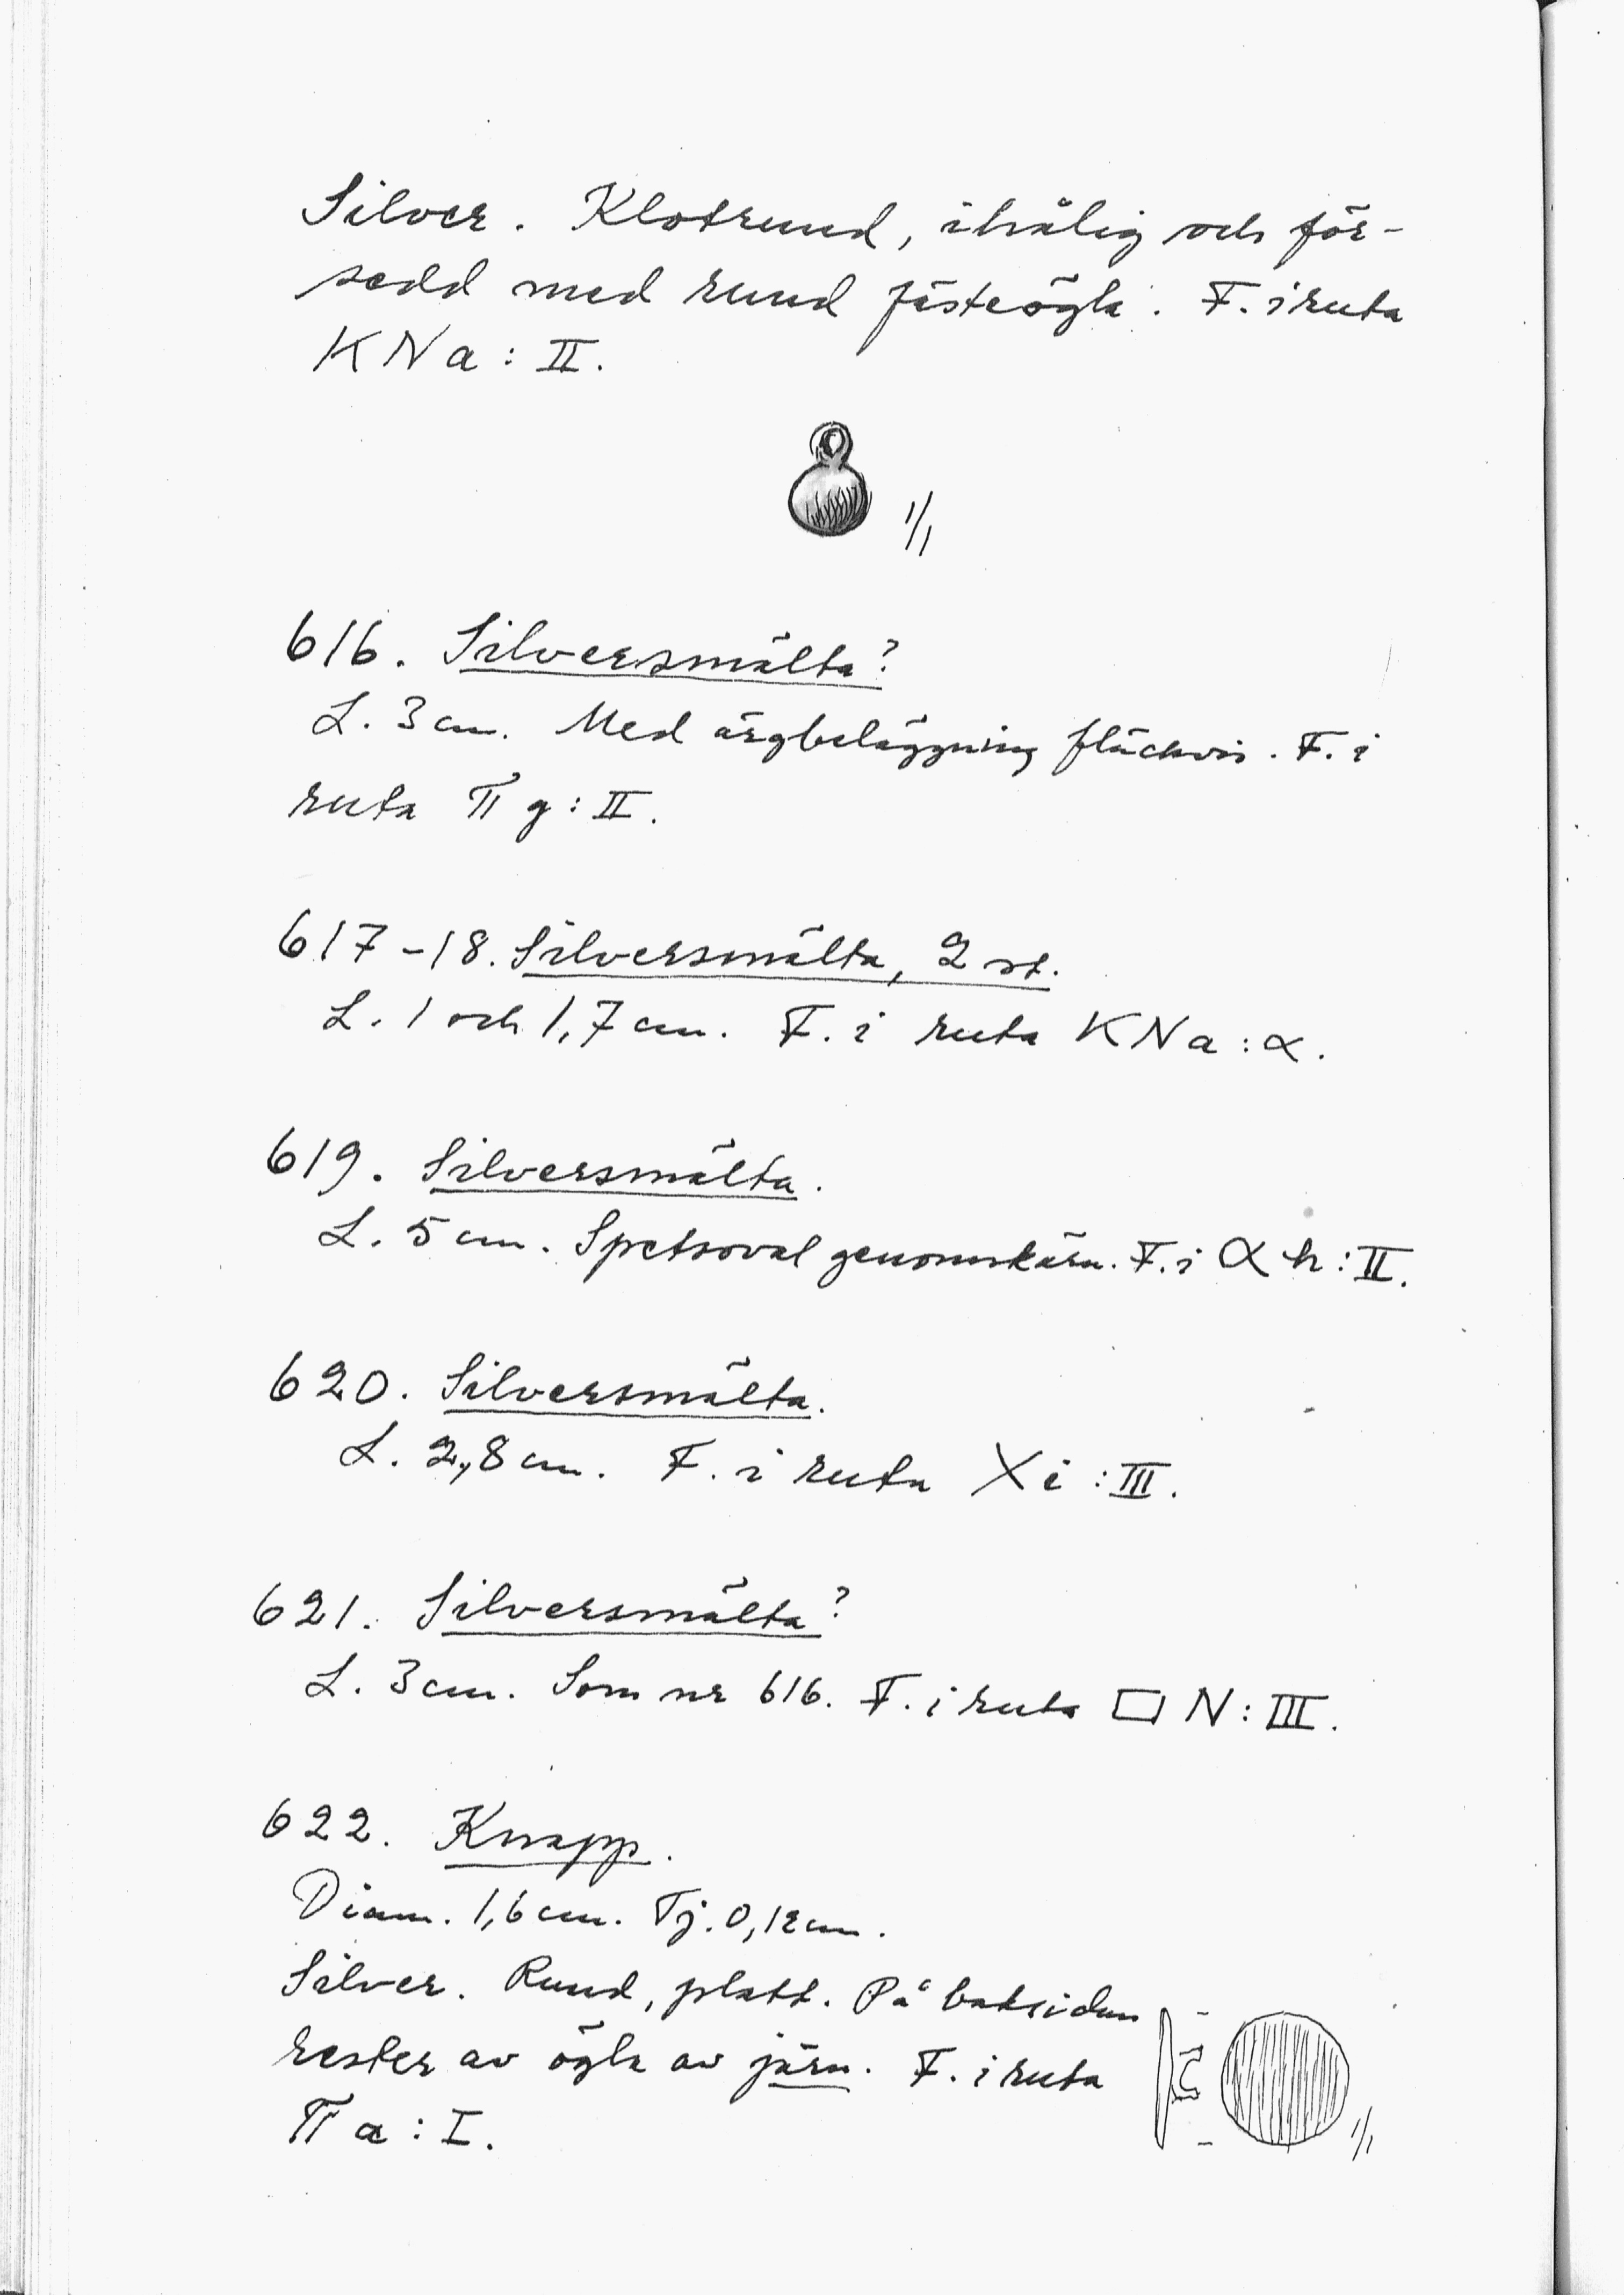 Silver. Klotrund, ihålig och för-
sedd med rund fästeögla. F. i ruta
KNa : II.
1/1
616. Silversmälta?
L. 3 cm. Med ärgbeläggning fläckvis. F. i
ruta π g : II.
617-18. Silversmälta, 2 st.
L. 1 och 1,7 cm. F. i ruta KNa : α.
619. Silversmälta.
L. 5 cm. Spetsoval genomskärn. F. i α h : II.
620. Silversmälta.
L. 2,8 cm. F. i ruta X i : III.
621. Silversmälta?
L. 3 cm. Som nr 616. F. i ruta □ N : III.
622. Knapp.
Diam. 1,6 cm. Tj. 0,12 cm.
Silver. Rund, platt. På baksidan
rester av ögla av järn. F. i ruta
π a : I.
1/1